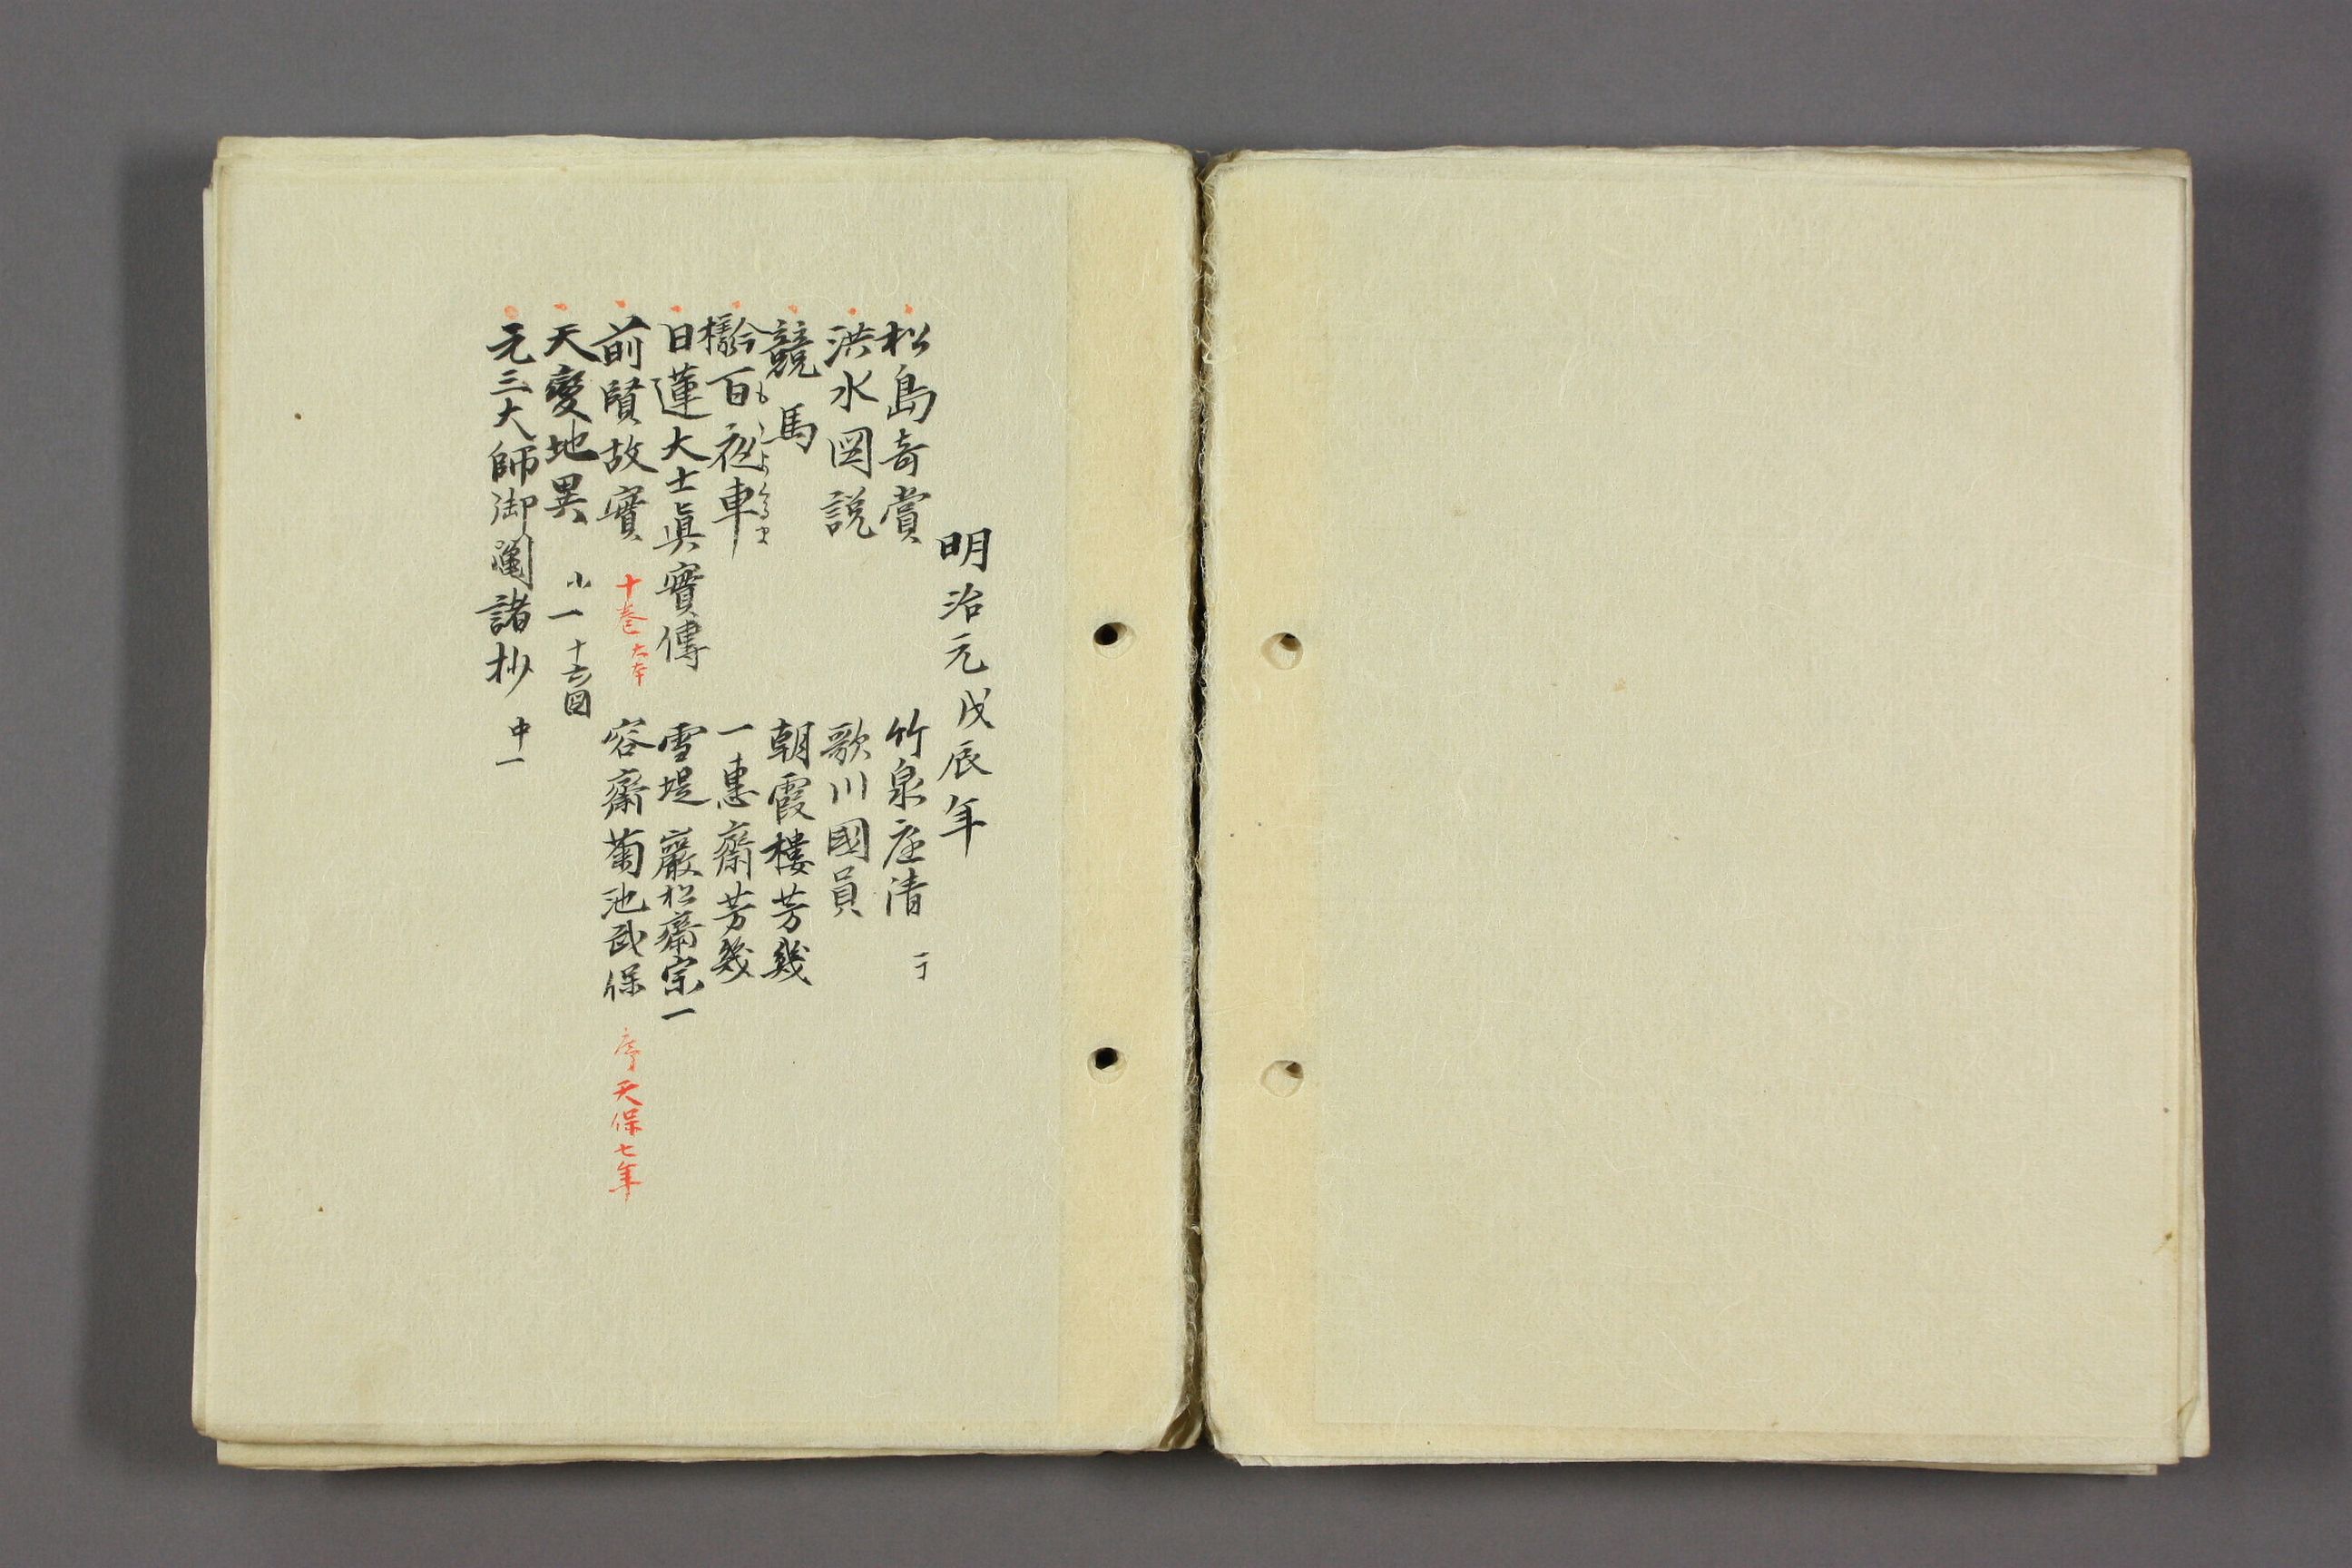 明治元戊辰年
松島奇賞 竹泉庄清 一丁
洪水図説 歌川國員
競馬 朝霞樓芳幾
百夜車 もゝよくるま 一惠齋芳幾
日蓮大士眞實傳 雪堤 巖松齋宗一
前賢故實 十巻 大本 容齋菊池武保 序天保七年
天變地異 小一 図
元三大師御鬮諸抄 中一